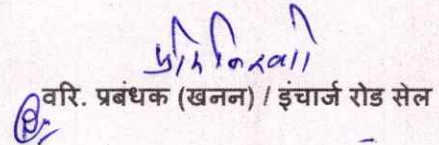 वरि. प्रबंधक (खनन) / इंचार्ज रोड सेल